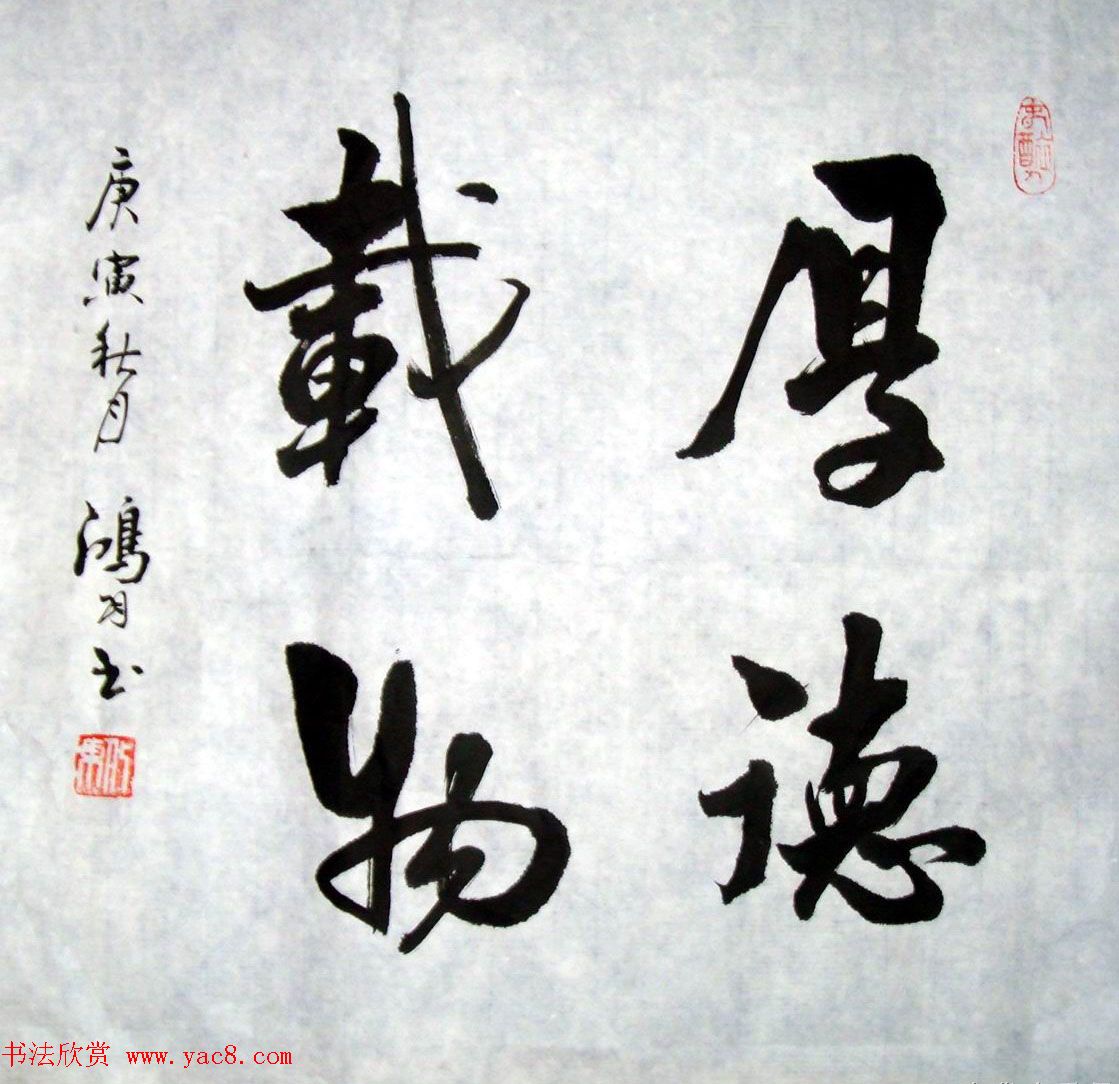 厚德
載物
庚寅秋月 鴻羽书
书法欣赏 www.yac8.com